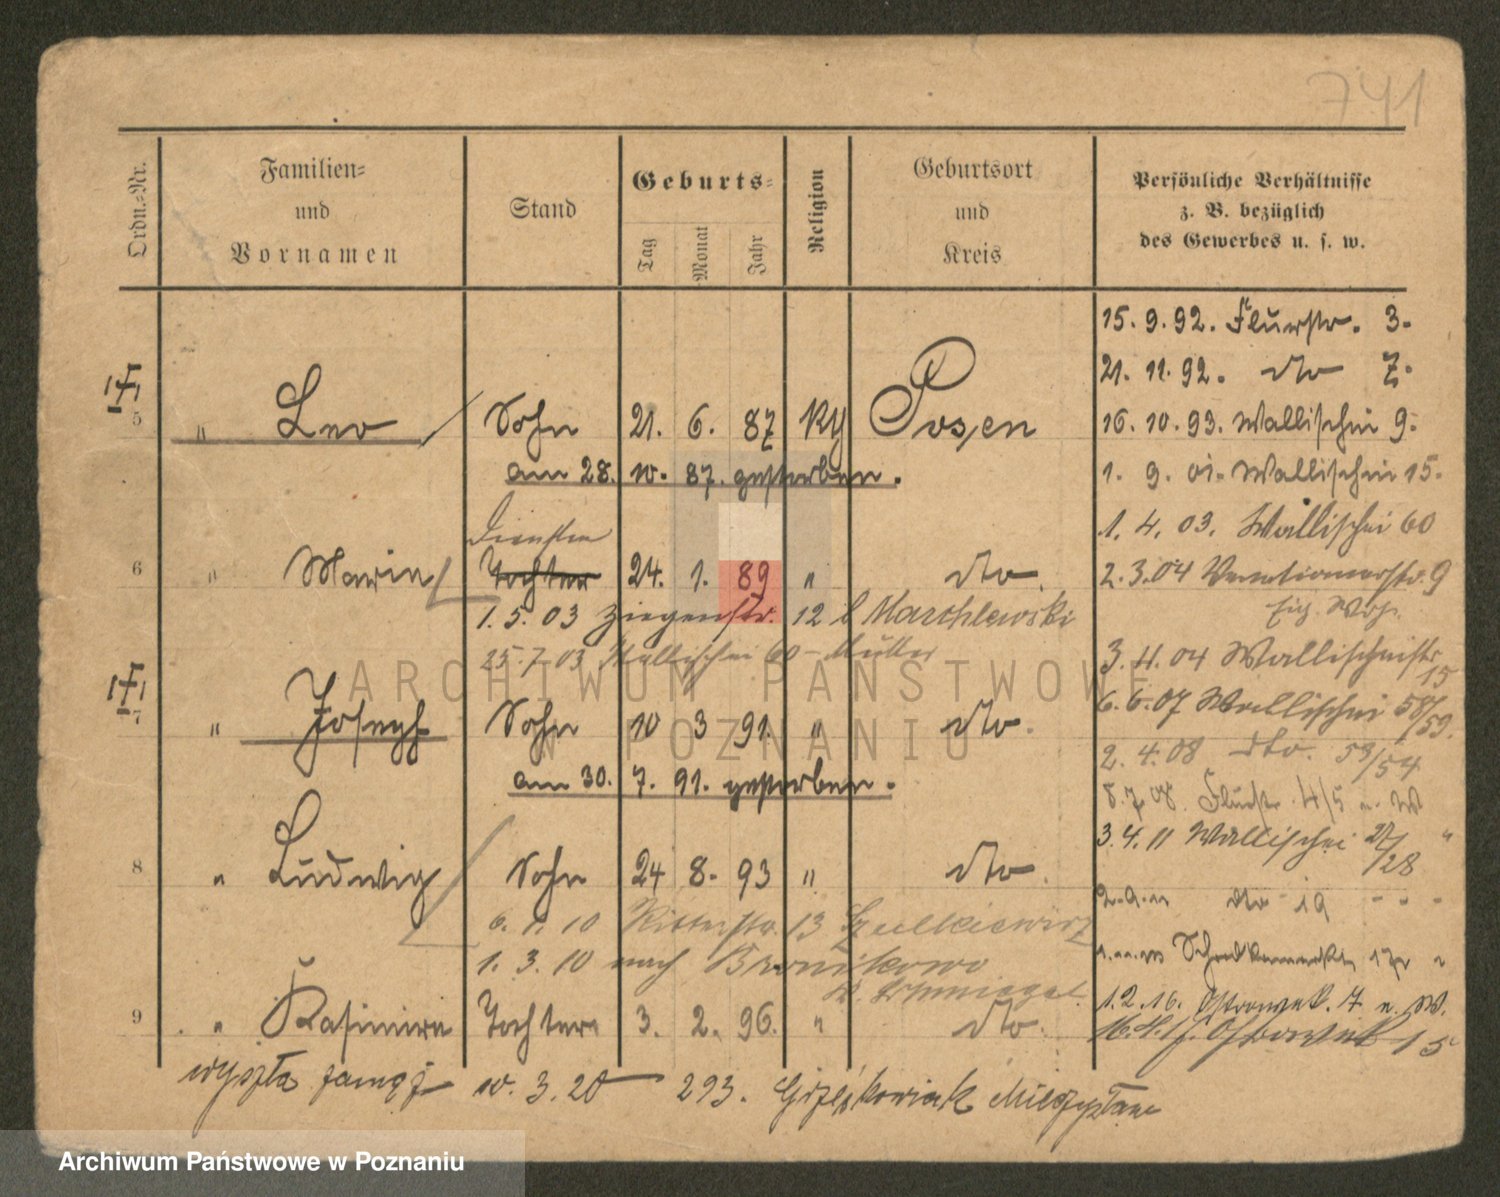 741
Ordn.-Nr.
Familien-
und
Vornamen
Stand
Geburts-
Tag
Monat
Jahr
Religion
Geburtsort
und
Kreis
Persönliche Verhältnisse
z. B. bezüglich
des Gewerbes u. s. w.
15. 9. 92. Flurstr. 3.
21. 11. 92. dto 7.
16. 10. 93. Wallischei 9.
1. 9. 01. Wallischei 15.
1. 4. 03. Wallischei 60
2. 3. 04 9
3. 4. 04 Wallischeistr. 15
6. 6. 07 Wallischei 58/59.
2. 4. 08 dto. 53/54
8. 7. 08. Flurstr. 4/5
3. 4. 11 Wallischei 27/28 "
dto 19
1. 2. 16. 17 u. W.
15
5 " Leo Sohn 21. 6. 87 Posen
am 28. 10. 87. gestorben.
6 " Marie Tochter 24. 1. 89 " dto.
1. 5. 03 Ziegenstr. 12 b Marchlewski
25. 7. 03 Wallischei 60 - Mutter
7 " Joseph Sohn 10 3 91. " dto.
am 30. 7. 91. gestorben.
8 " Ludwig Sohn 24 8. 93 " dto.
6. 1. 10 Ritterstr. 13 Szulkiewicz
1. 3. 10 nach Bronikowo
9 " Kasimira Tochter 3. 2. 96. " dto.
wyszła zamąż 10. 3. 20 293. Grześkowiak
ARCHIWUM PAŃSTWOWE
W POZNANIU
Archiwum Państwowe w Poznaniu